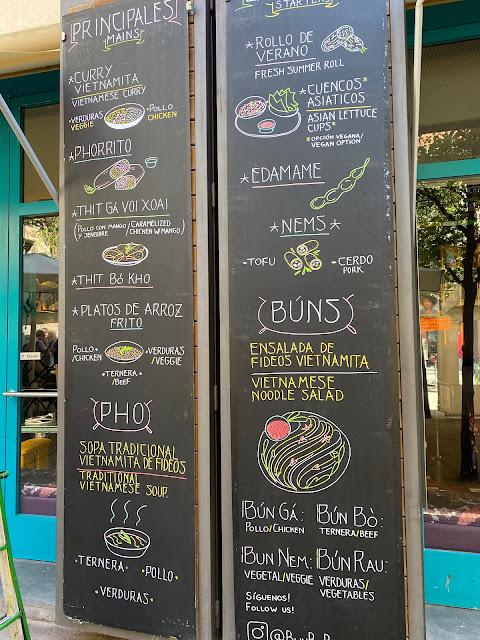 PRINCIPALES
MAINS
*CURRY
VIETNAMITA
VIETNAMESE CURRY
•VERDURAS
VEGGIE
•POLLO
CHICKEN
*PHORRITO
*THIT GÁ VOI XOAI
(POLLO CON MANGO/
Y JENGIBRE
CARAMELIZED
CHICKEN W/MANGO)
*THIT BÓ KHO
*PLATOS DE ARROZ
FRITO
POLLO•
/CHICKEN
•VERDURAS
/VEGGIE
•TERNERA
/BEEF
PHO
SOPA TRADICIONAL
VIETNAMITA DE FIDEOS
TRADITIONAL
VIETNAMESE SOUP
TERNERA•
•POLLO•
•VERDURAS
STARTERS
*ROLLO DE
VERANO
FRESH SUMMER ROLL
*CUENCOS*
ASIATICOS
ASIAN LETTUCE
CUPS*
*OPCIÓN VEGANA/
VEGAN OPTION
*EDAMAME
*NEMS*
-TOFU
-CERDO
PORK
BÚNS
ENSALADA DE
FIDEOS VIETNAMITA
VIETNAMESE
NOODLE SALAD
BÚN GÁ:
POLLO/CHICKEN
BÚN BÒ:
TERNERA/BEEF
BUN NEM:
VEGETAL/VEGGIE
BÚN RAU:
VERDURAS/
VEGETABLES
SÍGUENOS!
FOLLOW US!